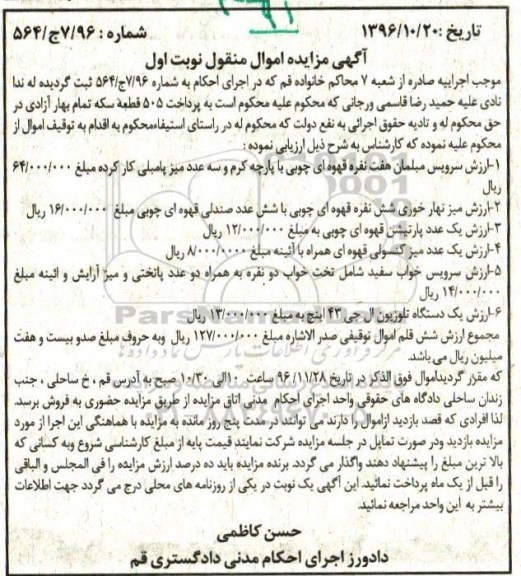 تاریخ :۱۳۹۶/۱۰/۲۰ شماره : ۷/۹۶ج/۵۶۴
آگهی مزایده اموال منقول نوبت اول
موجب اجراییه صادره از شعبه ۷ محاکم خانواده قم که در اجرای احکام به شماره ۷/۹۶ج/۵۶۴ ثبت گردیده له ندا
نادی علیه حمید رضا قاسمی ورجانی که محکوم علیه محکوم است به پرداخت ۵۰۵ قطعه سکه تمام بهار آزادی در
حق محکوم له و تادیه حقوق اجرائی به نفع دولت که محکوم له در راستای استیفاء محکوم به اقدام به توقیف اموال از
محکوم علیه نموده که کارشناس به شرح ذیل ارزیابی نموده :
۱-ارزش سرویس مبلمان هفت نفره قهوه ای چوبی با پارچه کرم و سه عدد میز پامبلی کار کرده مبلغ ۶۴/۰۰۰/۰۰۰
ریال
۲-ارزش میز نهار خوری شش نفره قهوه ای چوبی با شش عدد صندلی قهوه ای چوبی مبلغ ۱۶/۰۰۰/۰۰۰ ریال
۳-ارزش یک عدد پارتیشن قهوه ای چوبی به مبلغ ۱۲/۰۰۰/۰۰۰ ریال
۴-ارزش یک عدد میز کنسولی قهوه ای همراه با آئینه مبلغ ۸/۰۰۰/۰۰۰ ریال
۵-ارزش سرویس خواب سفید شامل تخت خواب دو نفره به همراه دو عدد پاتختی و میز آرایش و ائینه مبلغ
۱۴/۰۰۰/۰۰۰ ریال
۶-ارزش یک دستگاه تلوزیون ال جی ۴۳ اینچ به مبلغ ۱۳/۰۰۰/۰۰۰ ریال
مجموع ارزش شش قلم اموال توقیفی صدر الاشاره مبلغ ۱۲۷/۰۰۰/۰۰۰ ریال وبه حروف مبلغ صدو بیست و هفت
میلیون ریال می باشد.
که مقرر گردیداموال فوق الذکر در تاریخ ۹۶/۱۱/۲۸ ساعت ۱۰ الی ۱۰/۳۰ صبح به آدرس قم ، خ ساحلی ، جنب
زندان ساحلی دادگاه های حقوقی واحد اجرای احکام مدنی اتاق مزایده از طریق مزایده حضوری به فروش برسد.
لذا افرادی که قصد بازدید ازاموال را دارند می توانند در مدت پنج روز مانده به مزایده با هماهنگی این اجرا از مورد
مزایده بازدید ودر صورت تمایل در جلسه مزایده شرکت نمایند قیمت پایه از مبلغ کارشناسی شروع وبه کسانی که
بالا ترین مبلغ را پیشنهاد دهند واگذار می گردد. برنده مزایده باید ده درصد ارزش مزایده را فی المجلس و الباقی
را قبل از یک ماه پرداخت نمائید. این آگهی یک نوبت در یکی از روزنامه های محلی درج می گردد جهت اطلاعات
بیشتر به این واحد مراجعه نمائید.
حسن کاظمی
دادورز اجرای احکام مدنی دادگستری قم